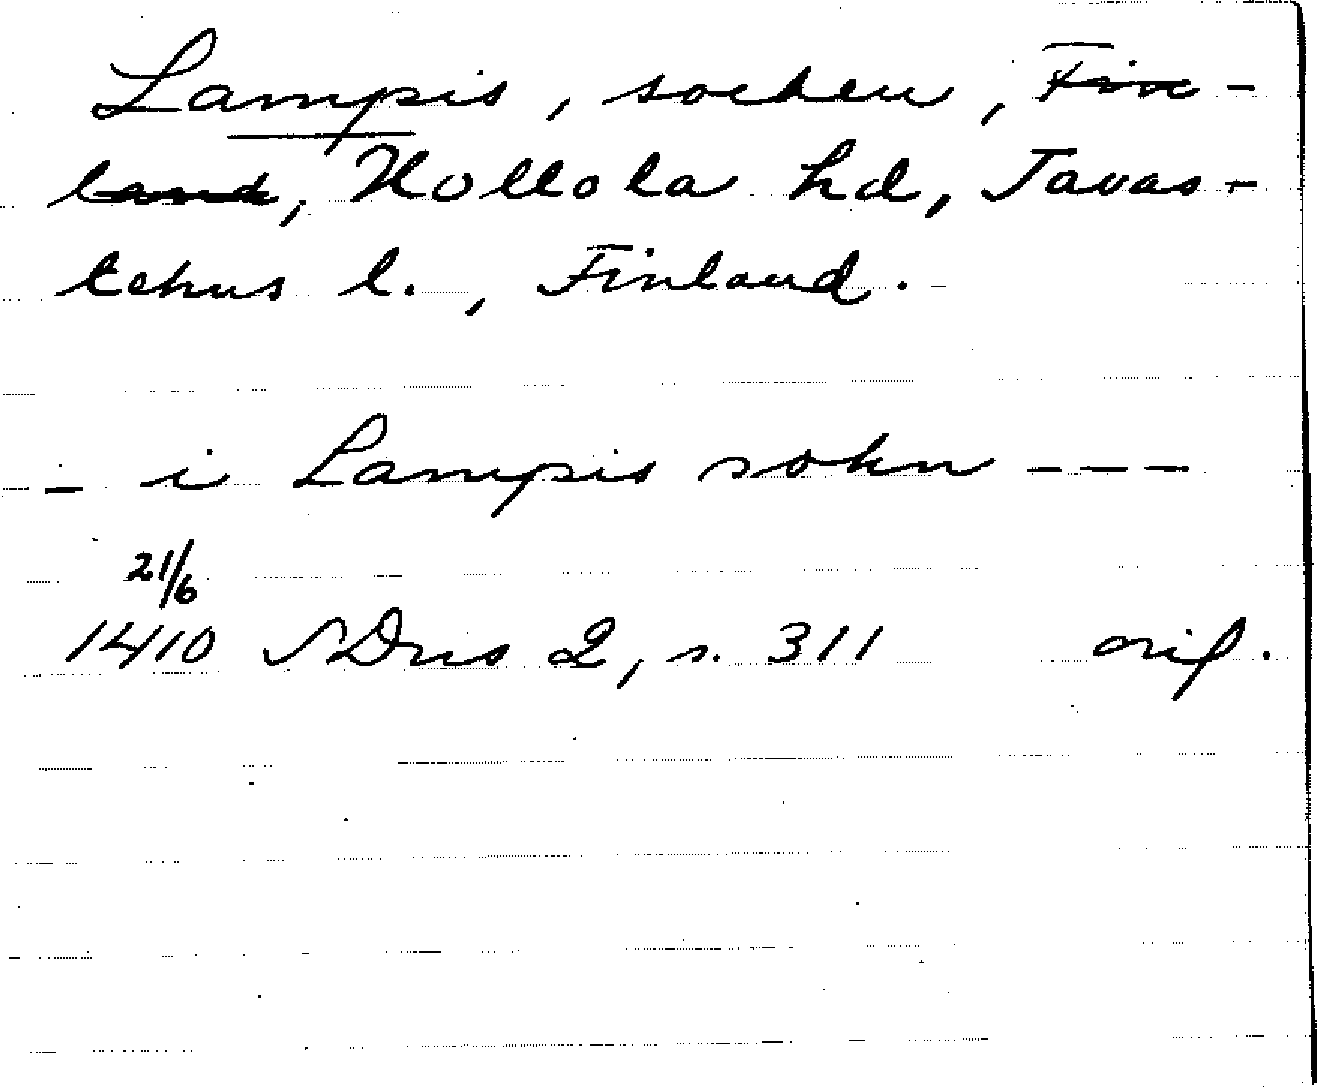 Lampis, socken, Fin-
land, Hollola hd, Tavas-
tehus l., Finland.
- i Lampis sokn ---
21/6
1410 SDns 2, s. 311 orig.